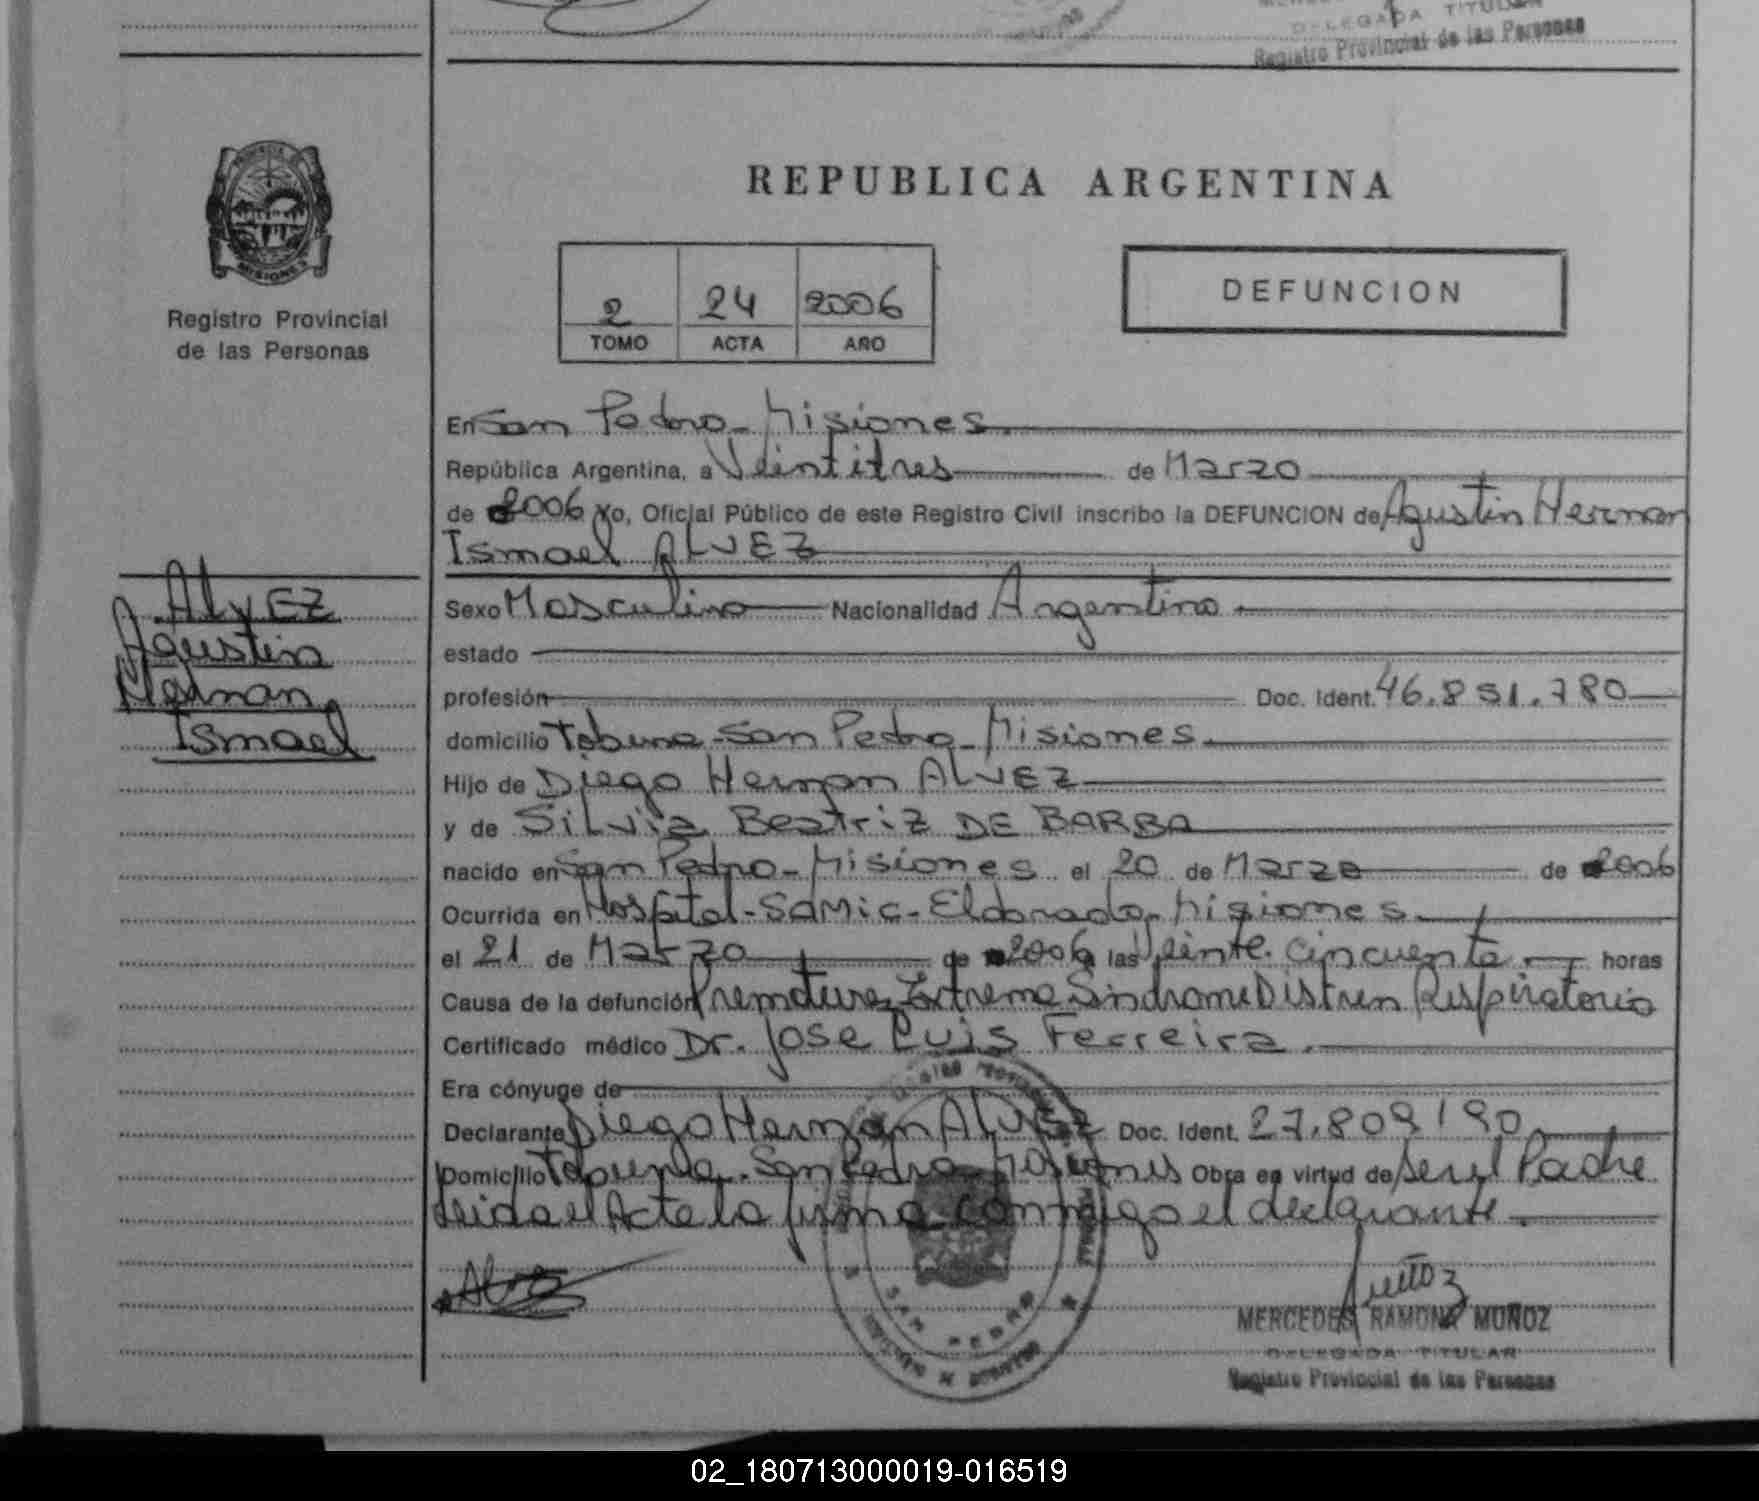 DELEGADA TITULAR
Registro Provincial de las Personas
PROVINCIA DE
MISIONES
Registro Provincial
de las Personas
REPUBLICA ARGENTINA
2 24 2006
TOMO ACTA AÑO
DEFUNCION
En San Pedro - Misiones
República Argentina, a Veintitres de Marzo
de 2006 Yo, Oficial Público de este Registro Civil inscribo la DEFUNCION de Agustin Hernan
Ismael ALVEZ
AlvEZ
Agustin
Hernan
Ismael
Sexo Masculino Nacionalidad Argentino
estado
profesión Doc. Ident. 46.851.780
domicilio Tobuna - San Pedro - Misiones
Hijo de Diego Hernan ALVEZ
y de Silvia Beatriz DE BARBA
nacido en San Pedro - Misiones el 20 de Marzo de 2006
Ocurrida en Hospital - SAMic - Eldorado, Misiones
el 21 de Marzo de 2006 a las Veinte. Cincuenta horas
Causa de la defunción Prematurez Extrema Sindrome Distren Respiratorio
Certificado médico Dr. Jose Luis Ferreira
Era cónyuge de
Declarante Diego Hernan ALVEZ Doc. Ident. 27.809190
Domicilio Tobuna - San Pedro - Misiones Obra en virtud de ser el Padre
Leida el Acta la firma conmigo el declarante.
SAN PEDRO
MERCEDES RAMONA MUÑOZ
DELEGADA TITULAR
Registro Provincial de las Personas
02_180713000019-016519